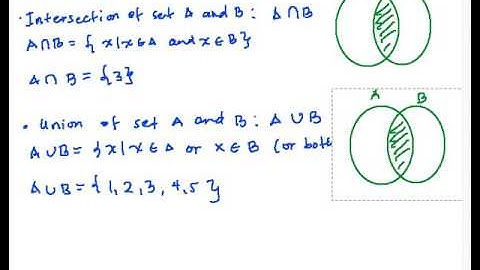 · Intersection of set A and B : A ∩ B
A∩B = { x | x ∈ A and x ∈ B }
A ∩ B = {3}
A B
• Union of set A and B : A ∪ B
A∪B = { x | x ∈ A or x ∈ B (or both
A∪B = { 1, 2, 3, 4, 5 }